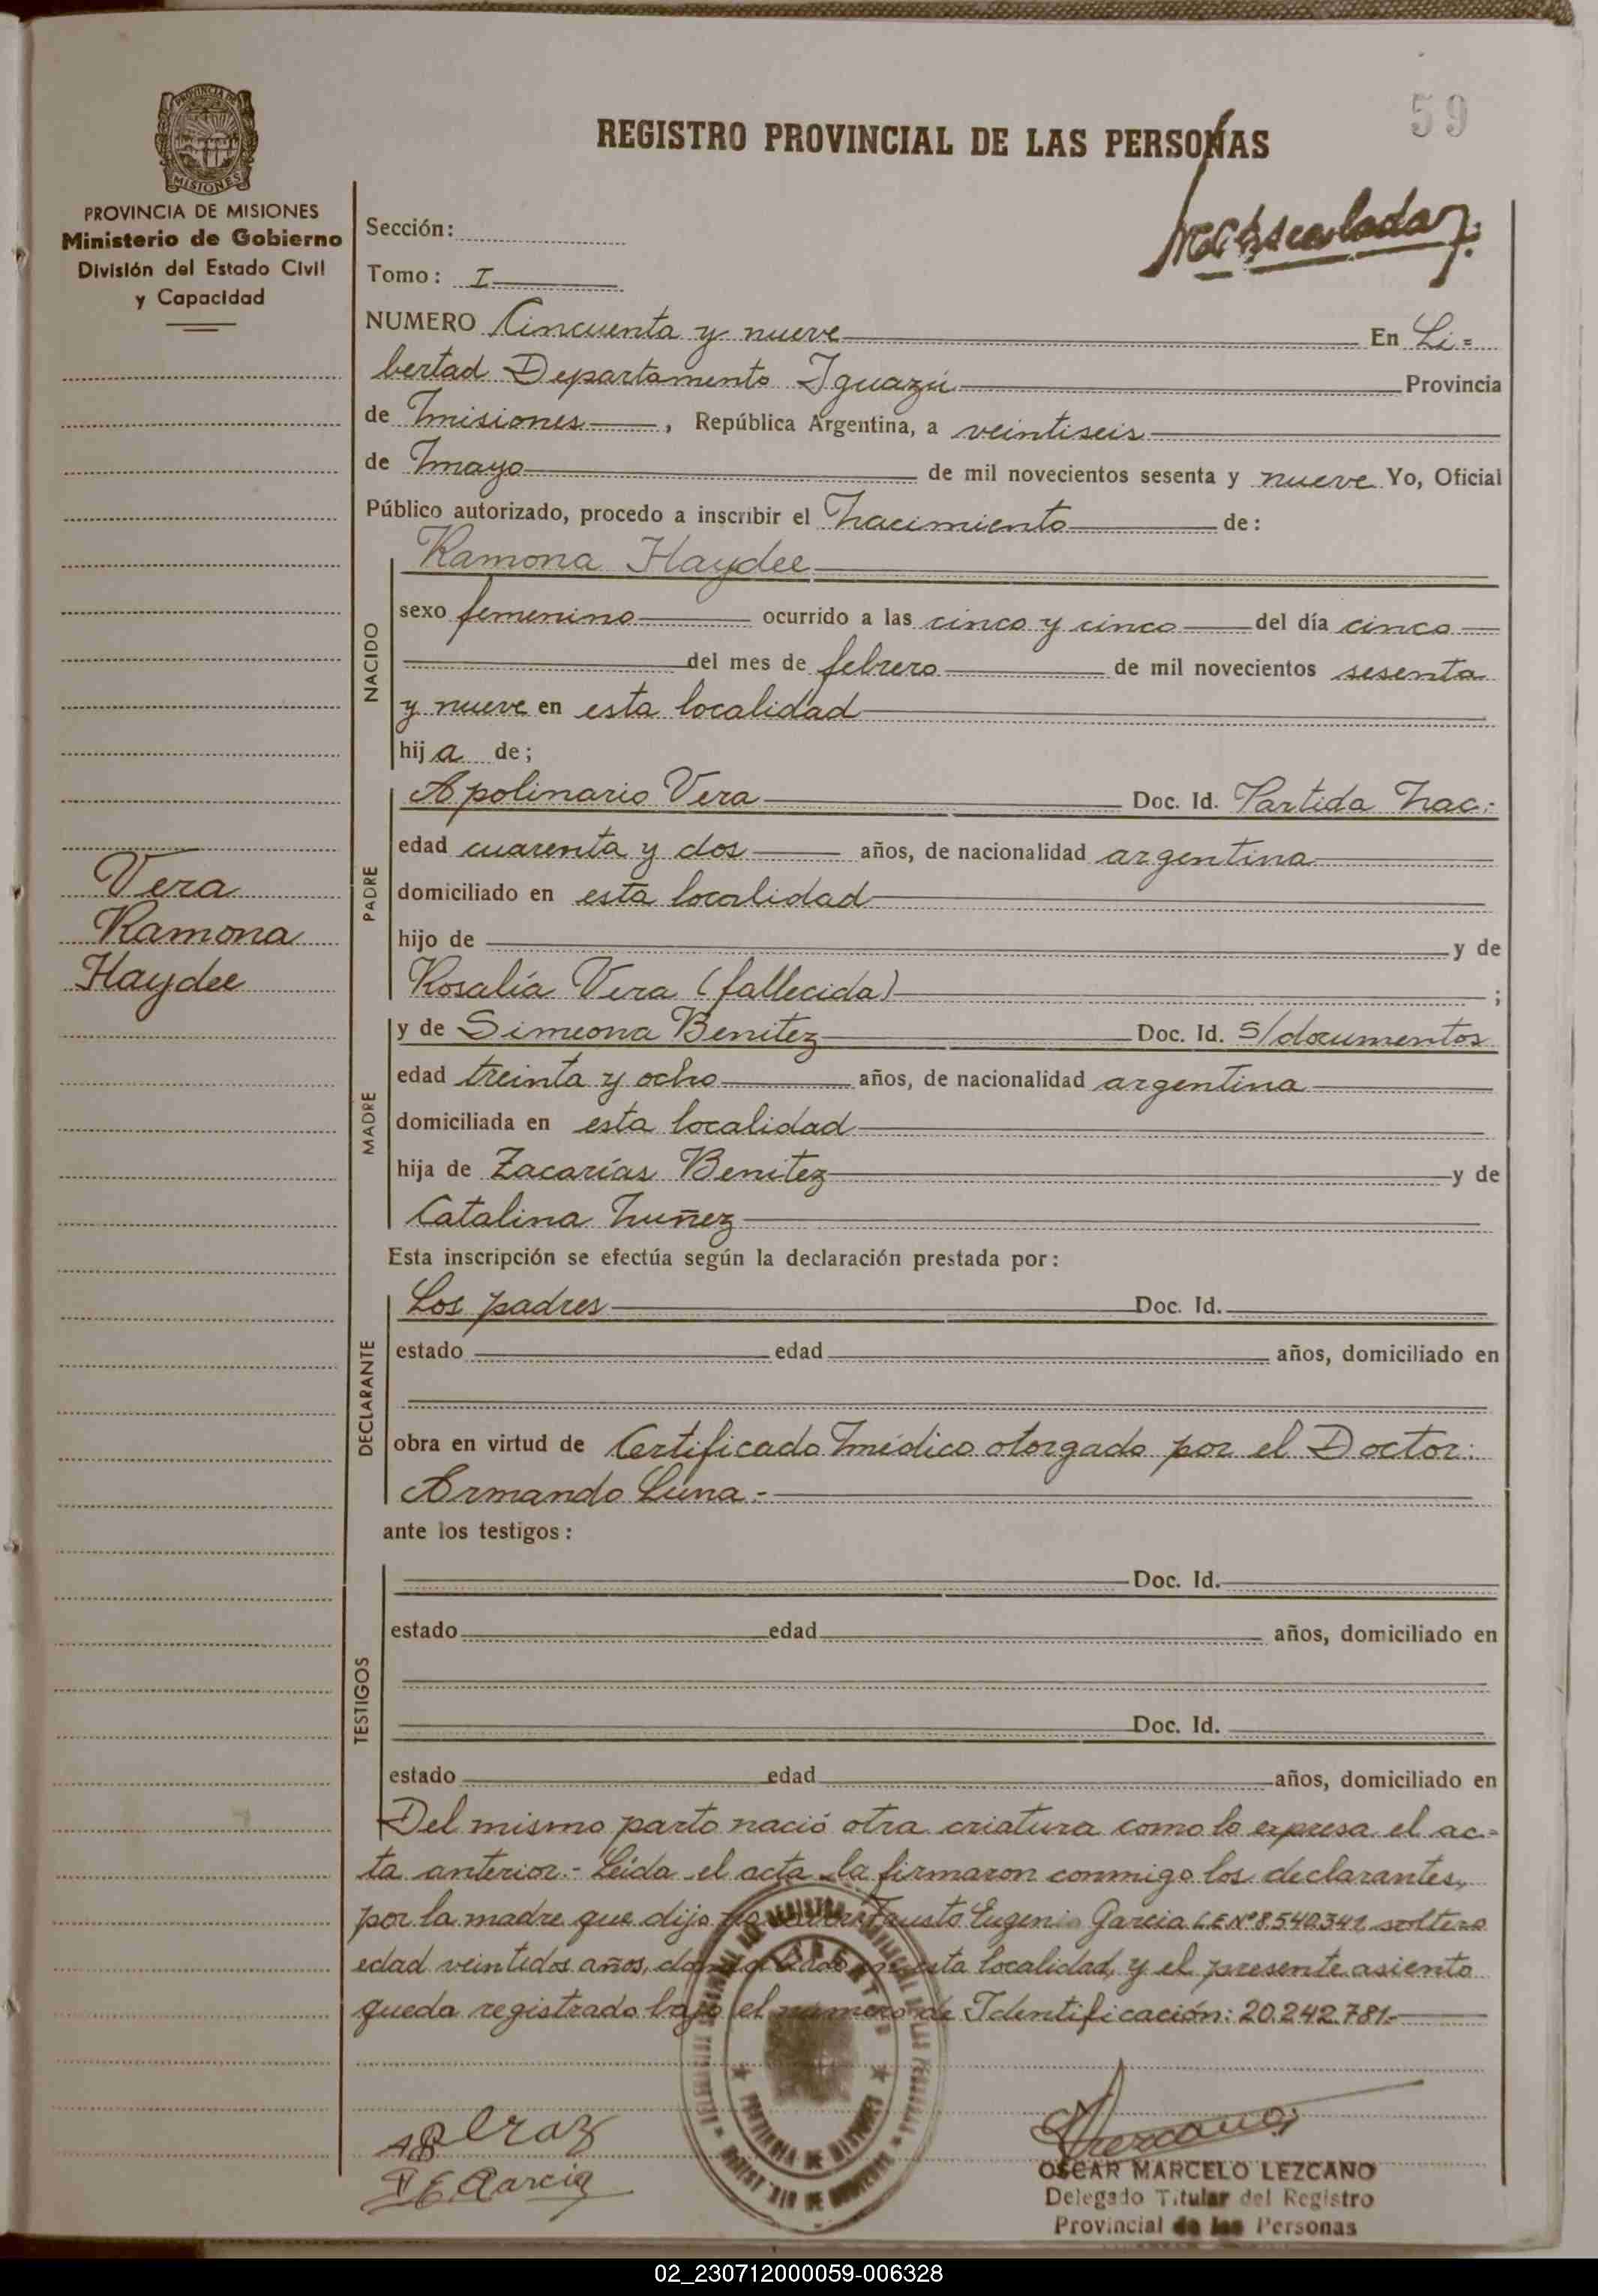 59
REGISTRO PROVINCIAL DE LAS PERSONAS
PROVINCIA DE MISIONES
Ministerio de Gobierno
División del Estado Civil
y Capacidad
Sección:
Tomo: I
NUMERO Cincuenta y nueve En Li=
bertad Departamento Iguazú Provincia
de Misiones, República Argentina, a veintiseis
de Mayo de mil novecientos sesenta y nueve Yo, Oficial
Público autorizado, procedo a inscribir el Nacimiento de:
NACIDO
Ramona Haydee
sexo femenino ocurrido a las cinco y cinco del día cinco
del mes de febrero de mil novecientos sesenta
y nueve en esta localidad
hija de;
PADRE
Apolinario Vera Doc. Id. Partida Nac:
edad cuarenta y dos años, de nacionalidad argentina
domiciliado en esta localidad
hijo de y de
Rosalía Vera (fallecida) ;
Vera
Ramona
Haydee
MADRE
y de Simeona Benitez Doc. Id. S/documentos
edad treinta y ocho años, de nacionalidad argentina
domiciliada en esta localidad
hija de Zacarías Benitez y de
Catalina Nuñez
Esta inscripción se efectúa según la declaración prestada por:
DECLARANTE
Los padres Doc. Id.
estado edad años, domiciliado en
obra en virtud de Certificado Médico otorgado por el Doctor:
Armando Luna.-
ante los testigos:
TESTIGOS
Doc. Id.
estado edad años, domiciliado en
Doc. Id.
estado edad años, domiciliado en
Del mismo parto nació otra criatura como lo expresa el ac-
ta anterior.- Leída el acta la firmaron conmigo los declarantes,
por la madre que dijo Fausto Eugenio Garcia L.E.Nº8.540.341 soltero
edad veintidos años, domiciliado en esta localidad, y el presente asiento
queda registrado bajo el número de Identificación: 20.242.781.-
F E Garcia
OSCAR MARCELO LEZCANO
Delegado Titular del Registro
Provincial de las Personas
02_230712000059-006328